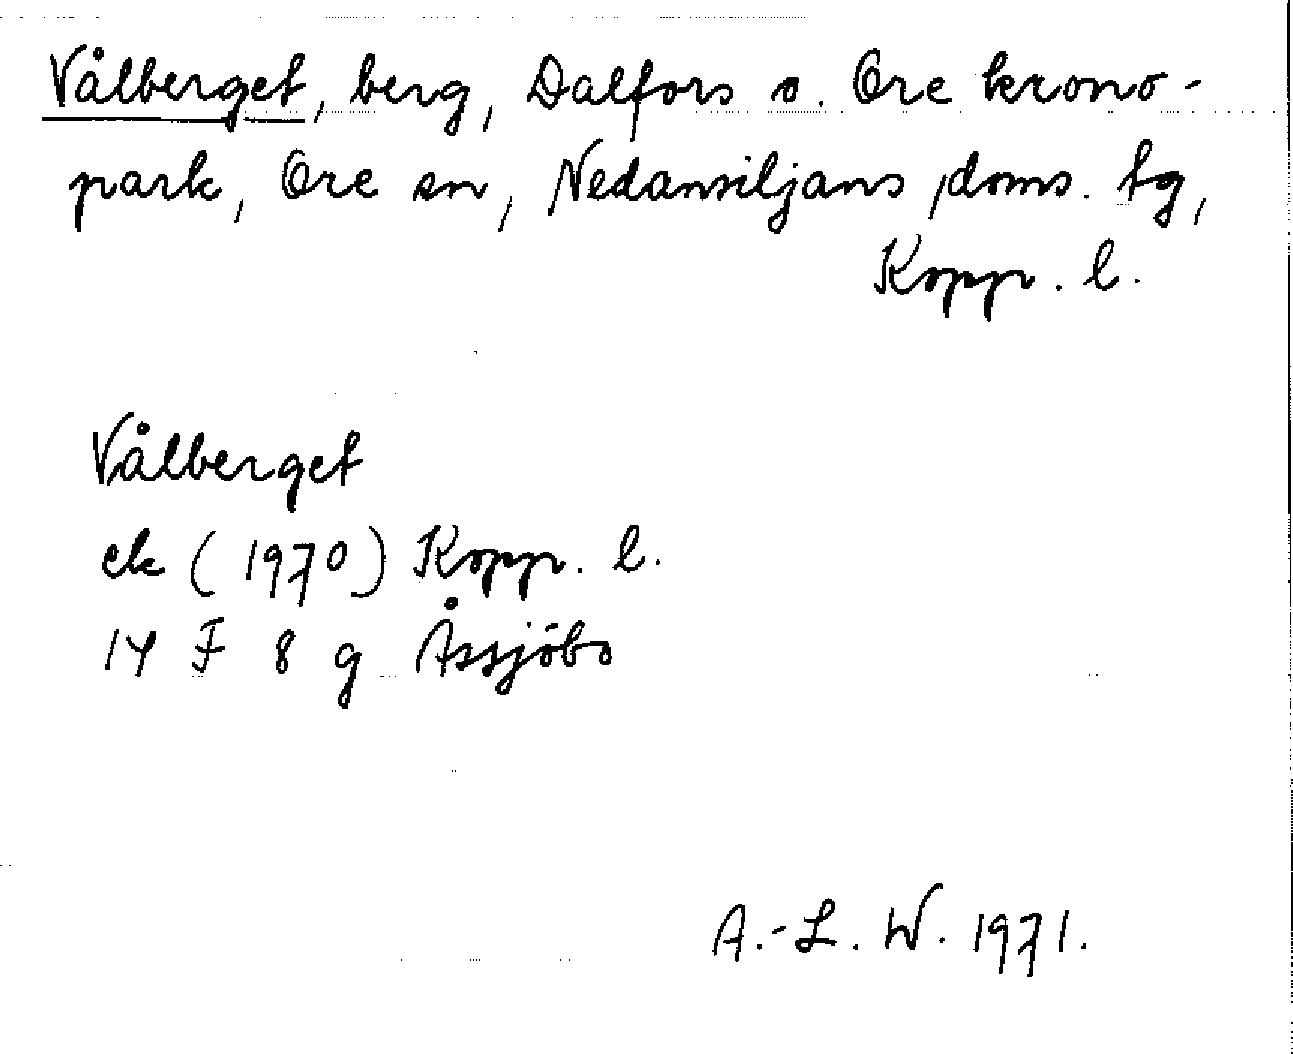 Vålberget, berg, Dalfors o. Ore krono-
park, Ore sn, Nedansiljans doms. tg,
Kopp. l.
Vålberget
ek (1970) Kopp. l.
14 F 8 g Åssjöbo
A.-L. W. 1971.